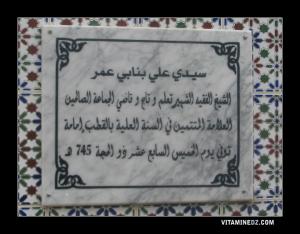 سيدي علي بنابي عمر
الشيخ الفقيه الشهير تعلم و تاج و قاضي الجماعة الصالحين
العلامة المنتمين في السنة العلية بالقطب إمامة
توفي يوم الخميس السابع عشر ذو الحجة 745 هـ
VITAMINEDZ.COM